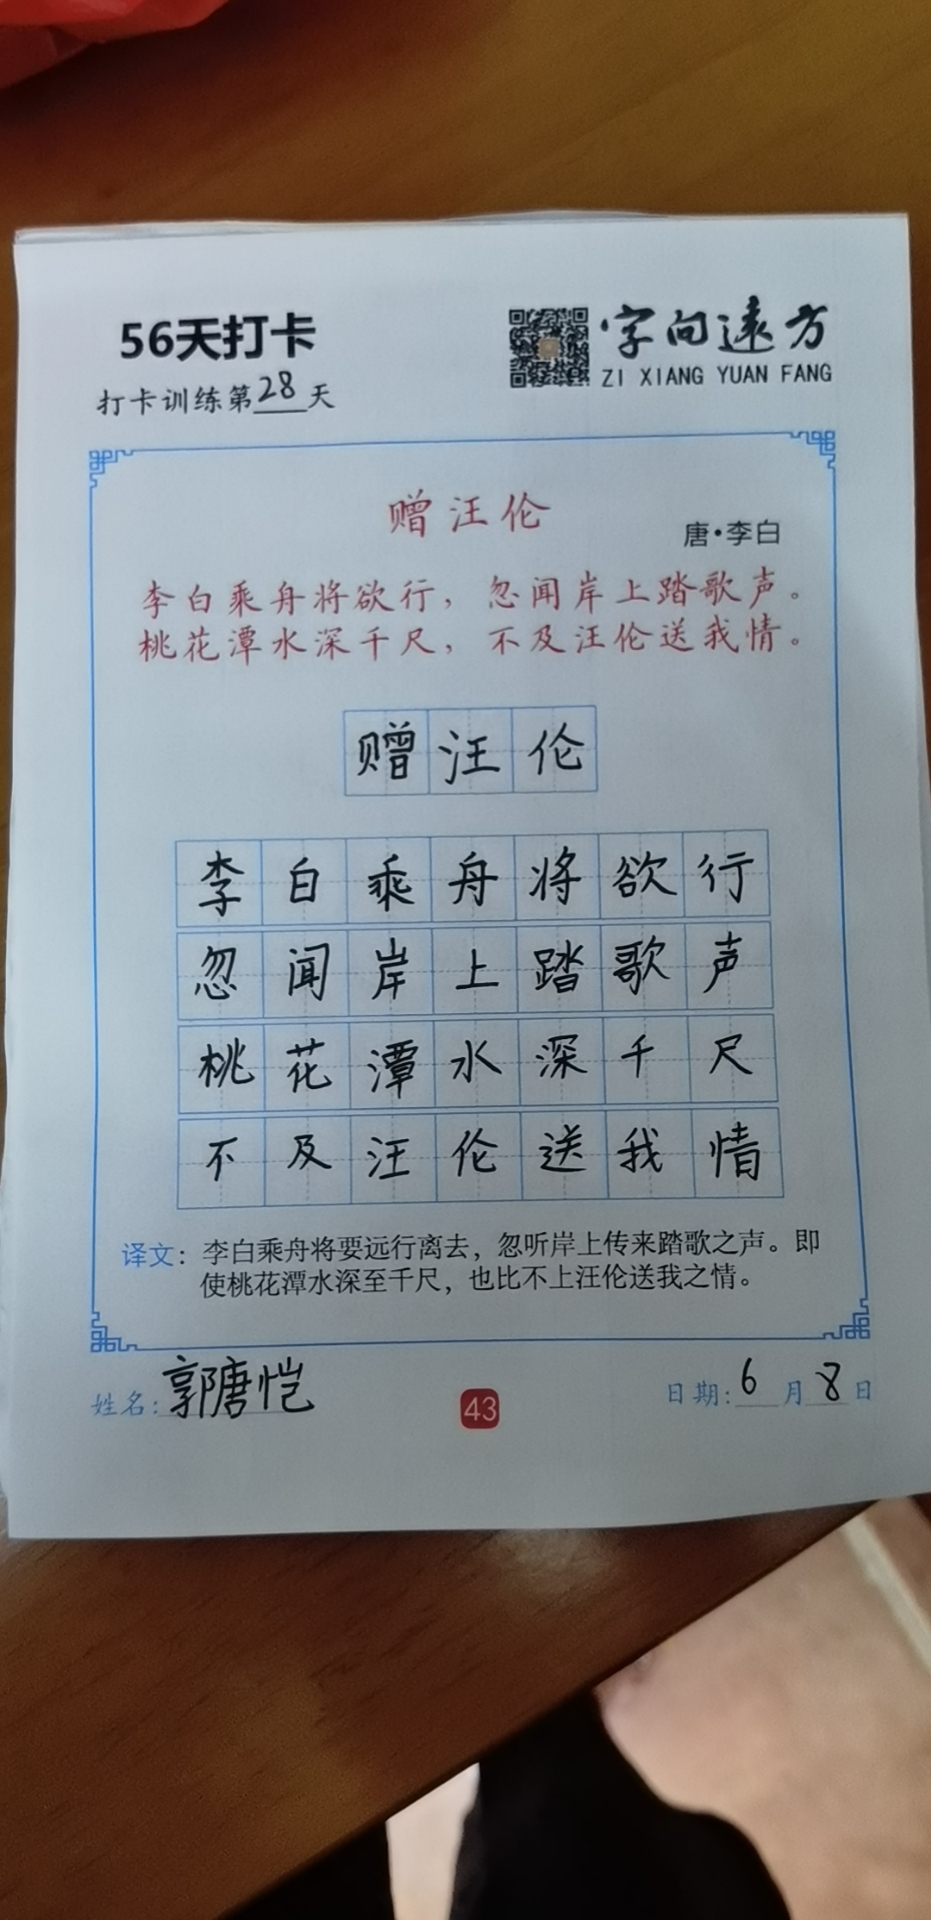 56天打卡
字向遠方
ZI XIANG YUAN FANG
打卡训练第28天
赠汪伦
唐·李白
李白乘舟将欲行，忽闻岸上踏歌声。
桃花潭水深千尺，不及汪伦送我情。
赠汪伦
李白乘舟将欲行
忽闻岸上踏歌声
桃花潭水深千尺
不及汪伦送我情
译文：李白乘舟将要远行离去，忽听岸上传来踏歌之声。即
使桃花潭水深至千尺，也比不上汪伦送我之情。
姓名：郭唐恺
43
日期：6月8日